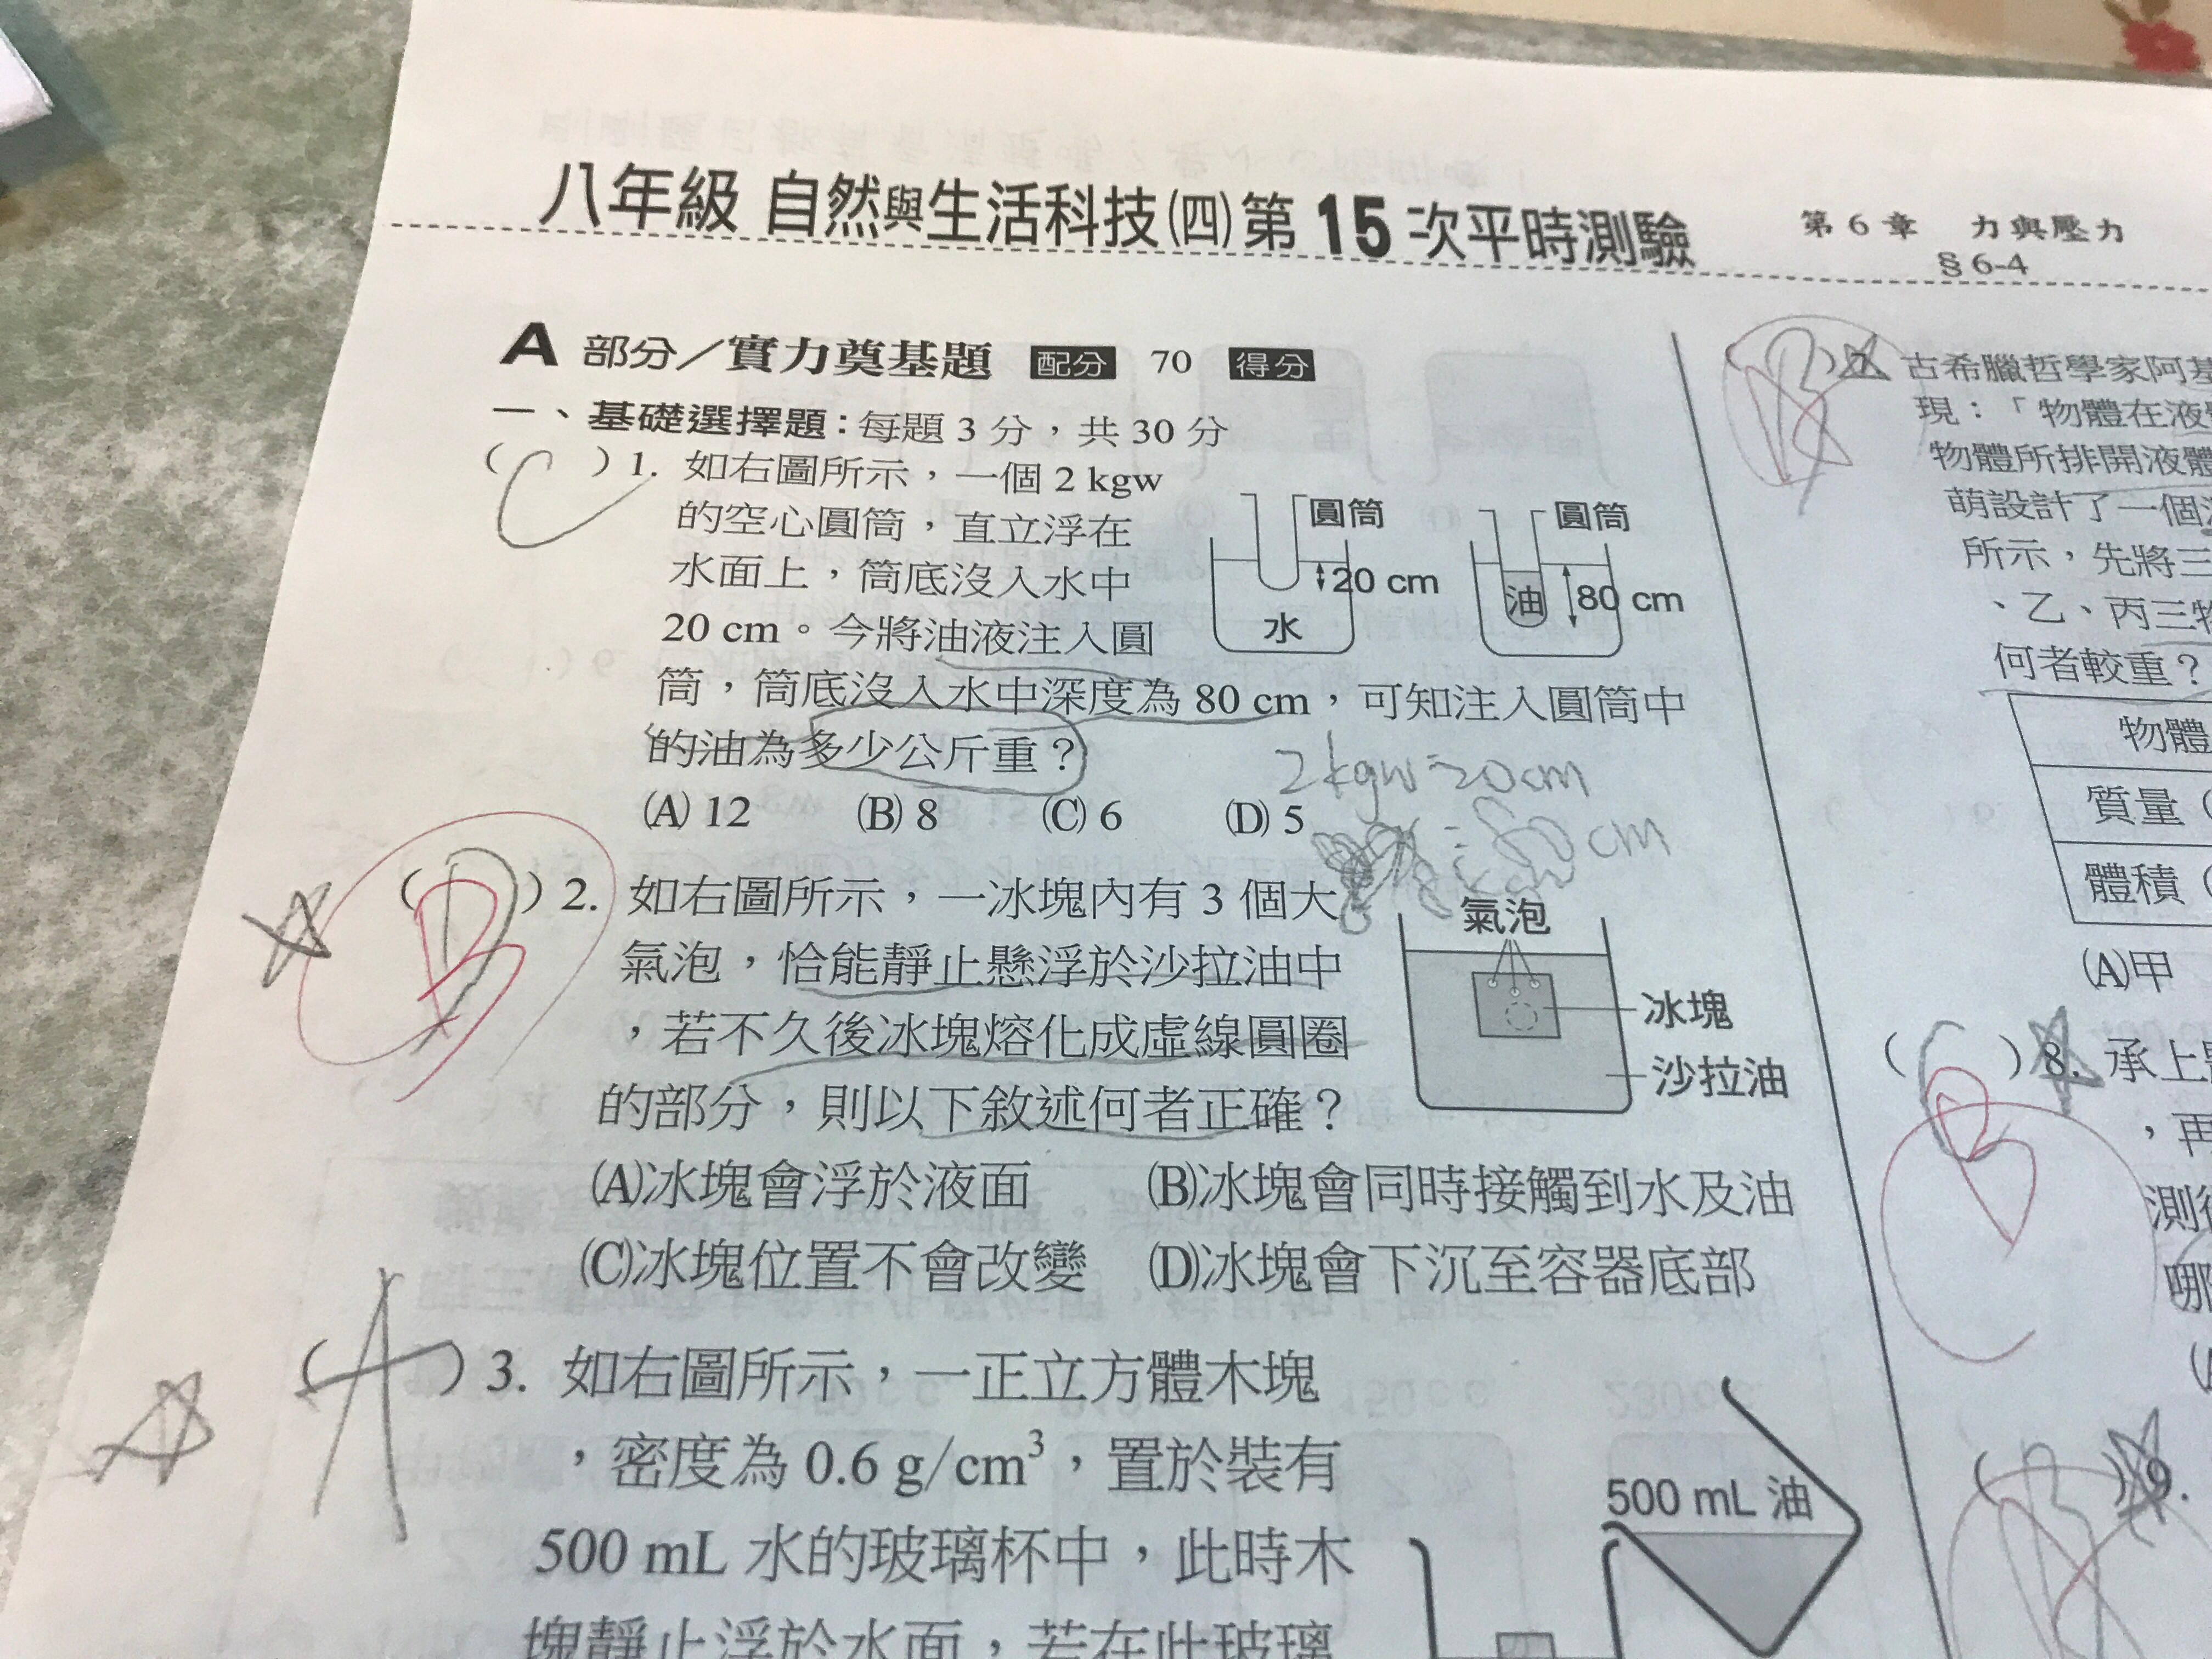 八年級 自然與生活科技(四)第 15 次平時測驗
第 6 章 力與壓力
§ 6-4
A 部分／實力奠基題 配分 70 得分
一、基礎選擇題：每題 3 分，共 30 分
( C ) 1. 如右圖所示，一個 2 kgw
的空心圓筒，直立浮在
水面上，筒底沒入水中
20 cm。今將油液注入圓
筒，筒底沒入水中深度為 80 cm，可知注入圓筒中
的油為多少公斤重？
(A) 12 (B) 8 (C) 6 (D) 5
圓筒
20 cm
水
圓筒
油
80 cm
2kgw=20cm
80 cm
( B ) 2. 如右圖所示，一冰塊內有 3 個大
氣泡，恰能靜止懸浮於沙拉油中
，若不久後冰塊熔化成虛線圓圈
的部分，則以下敘述何者正確？
(A)冰塊會浮於液面 (B)冰塊會同時接觸到水及油
(C)冰塊位置不會改變 (D)冰塊會下沉至容器底部
氣泡
冰塊
沙拉油
( A ) 3. 如右圖所示，一正立方體木塊
，密度為 0.6 g/cm³，置於裝有
500 mL 水的玻璃杯中，此時木
塊靜止浮於水面，若在此玻璃
500 mL 油
( B ) 7. 古希臘哲學家阿基
現：「物體在液體
物體所排開液體
萌設計了一個
所示，先將三
、乙、丙三物
何者較重？
物體
質量
體積
(A)甲
( B ) 8. 承上題
，再
測
哪
(A
( ) 9.